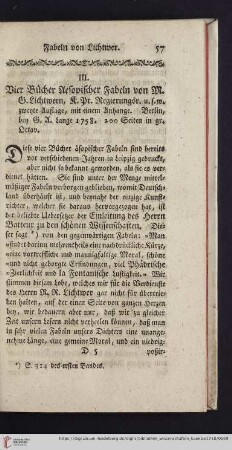 Fabeln von Lichtwer. 57
III.
Vier Bücher Aesopischer Fabeln von M.
G. Lichtwern, K. Pr. Regierungsr. u. s. w.
zweyte Auflage, mit einem Anhange. Berlin,
bey G. A. Lange 1758. 200 Seiten in gr.
Octav.
Diese vier Bücher äsopischer Fabeln sind bereits
vor verschiedenen Jahren in Leipzig gedruckt,
aber nicht so bekannt geworden, als sie es verdienet
hätten. Sie sind unter der Menge mittelmäßiger
Fabeln verborgen geblieben, womit Deutschland
überhäuft ist, und beynahe der einzige Kunstrichter,
welcher sie daraus hervorgezogen hat, ist
der beliebte Uebersetzer der Einleitung des Herrn
Batteux zu den schönen Wissenschaften. Dieser
sagt *) von den gegenwärtigen Fabeln: „Man
„findet darinn mehrentheils eine nachdrückliche Kürze,
„eine vortreffliche und mannigfaltige Moral, schöne
„und nicht geborgte Erfindungen, viel Phädrische
„Zierlichkeit und la Fontainische Lustigkeit.„ Wir
stimmen diesem Lobe, welches wir für die Verdienste
des Herrn R. R. Lichtwer gar nicht für übertrieben
halten, auf der einen Seite von ganzen Herzen
bey; wir bedauern aber nur, daß wir zu gleicher
Zeit unsern Lesern nicht verheelen können, daß man
in sehr vielen Fabeln dieses Dichters eine unangenehme
Länge, eine gemeine Moral, und ein niedrig-
D 5 poßir-
*) S. 324 des ersten Bandes.